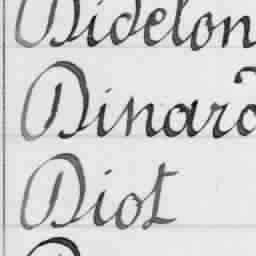 Didelon
Dinard
Diot